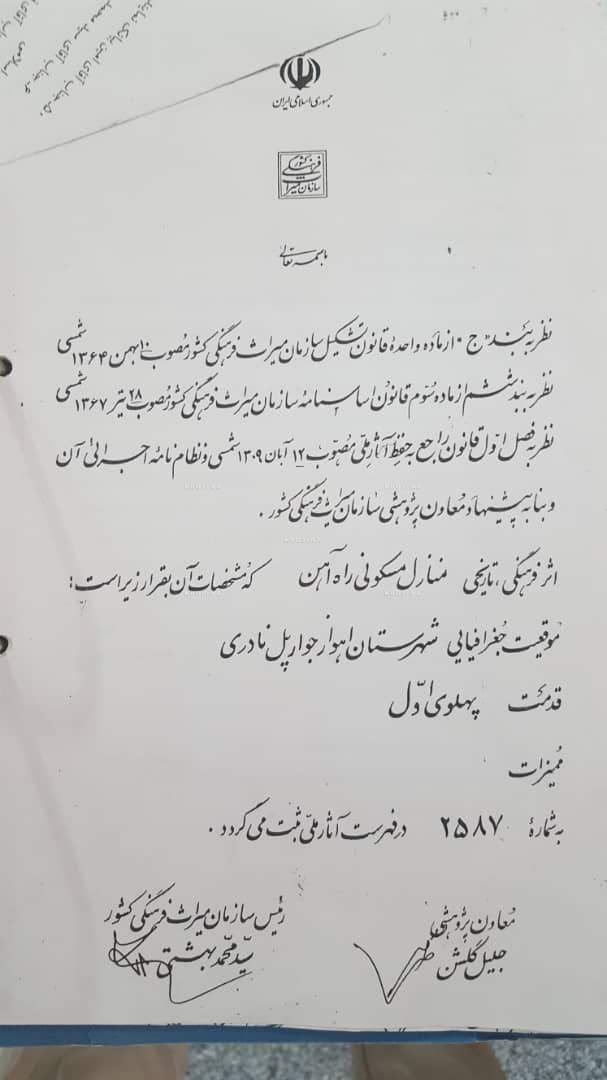 جمهوری اسلامی ایران
سازمان میراث فرهنگی کشور
باسمه تعالی
نظر به بند "ج" از ماده واحدهٔ قانون تشکیل سازمان میراث فرهنگی کشور مصوب ۱۰ بهمن ۱۳۶۴ شمسی
نظر به بند ششم از ماده سوّم قانون اساسنامهٔ سازمان میراث فرهنگی کشور مصوب ۲۸ تیر ۱۳۶۷ شمسی
نظر به فصل اوّل قانون راجع به حفظ آثار ملّی مصّوب ۱۲ آبان ۱۳۰۹ شمسی و نظام نامهٔ اجرائی آن
و بنا به پیشنهاد معاون پژوهشی سازمان میراث فرهنگی کشور.
اثر فرهنگی، تاریخی منازل مسکونی راه آهن که مشخصات آن بقرار زیر است:
موقعیت جغرافیایی شهرستان اهواز جوار پل نادری
قدمت پهلوی اوّل
ممیزات
به شمارهٔ ۲۵۸۷ در فهرست آثار ملّی ثبت می گردد.
معاون پژوهشی
جلیل گلشن
رئیس سازمان میراث فرهنگی کشور
سیّد محمّد بهشتی